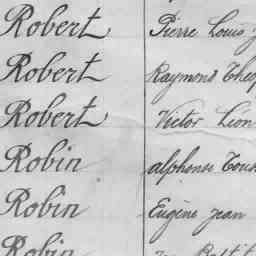 Robert Pierre Louis
Robert Raymond
Robert Victor Léon
Robin alphonse
Robin Eugène Jean
Robin